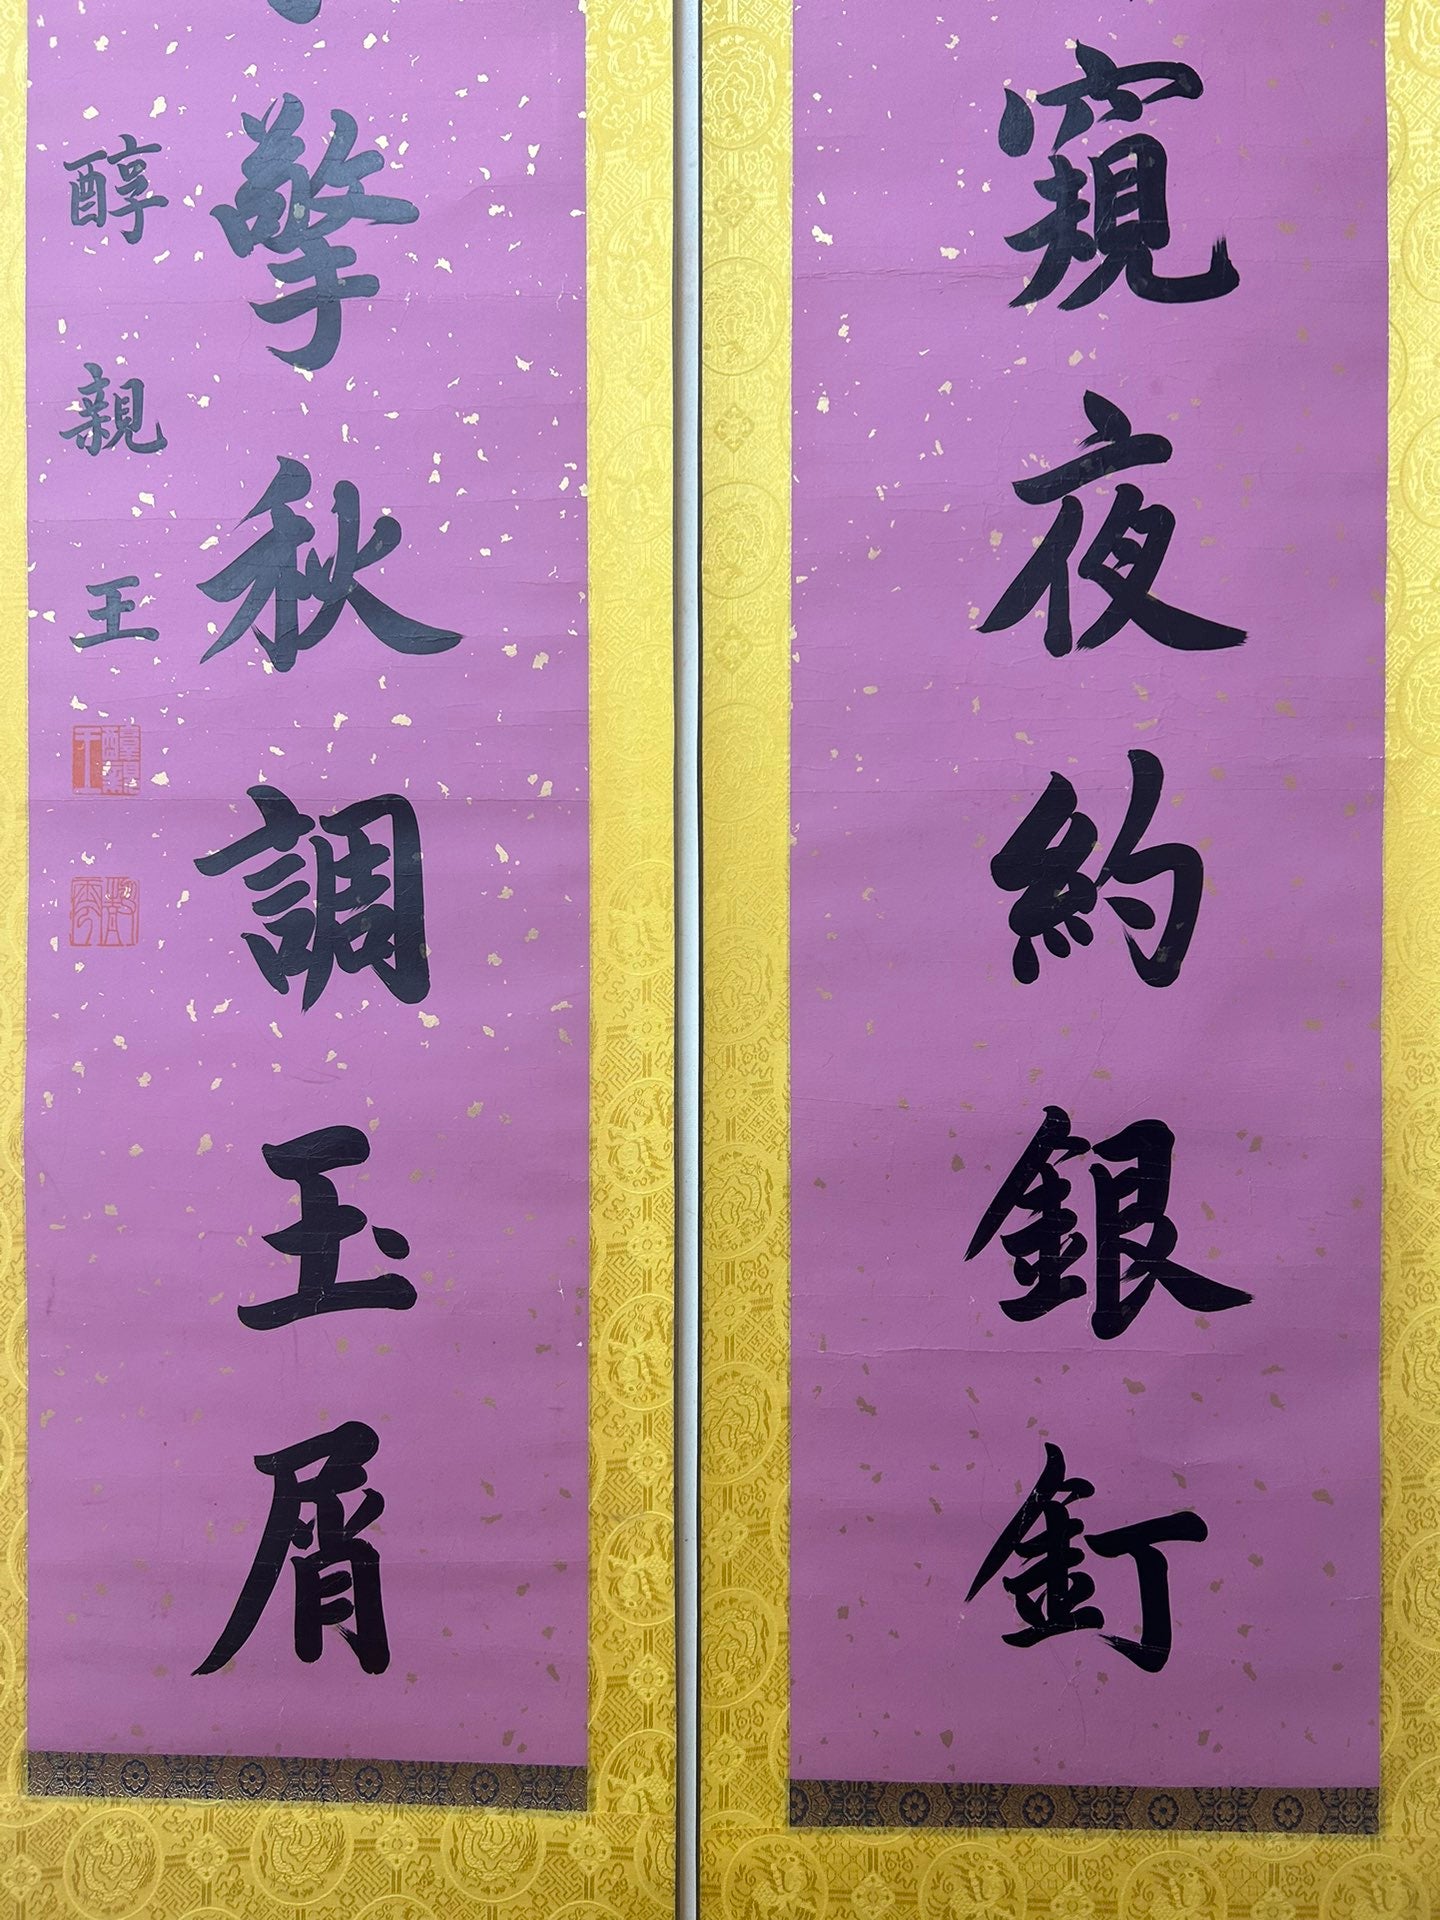 窺夜約銀釘
擎秋調玉屑
醇親王